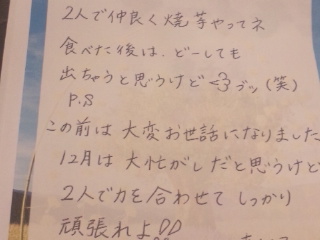 2人で仲良く焼芋やってネ
食べた後は、どーしても
出ちゃうと思うけど ブッ(笑)
P.S
この前は大変お世話になりました
12月は大忙がしだと思うけど
2人で力を合わせてしっかり
頑張れよ!!